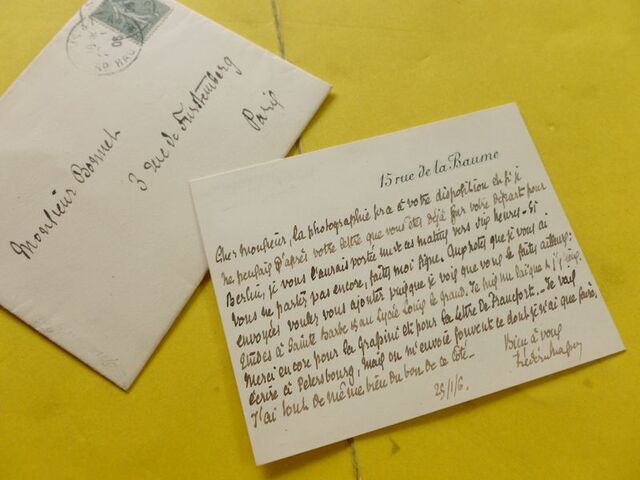 Monsieur Bonnet
3 rue de Furstemberg
Paris
15 rue de la Baume
Cher monsieur, la photographie sera à votre disposition si je
ne pensais d'après votre lettre que vous êtes déjà sur votre départ pour
Berlin, je vous l'aurais portée un de ces matins vers dix heures - Si
vous ne partez pas encore, faites moi signe. Aux notes que je vous ai
envoyées voulez vous ajouter puisque je vois que vous le faites ailleurs:
Etudes à Sainte Barbe et au Lycée Louis le Grand. Je
Merci encore pour la et pour la lettre de Francfort - Je vais
écrire à Petersbourg, mais on m'envoie souvent ce dont je n'ai que faire,
J'ai tout de même bien du bon de ce côté -
bien à vous
25/1/6.